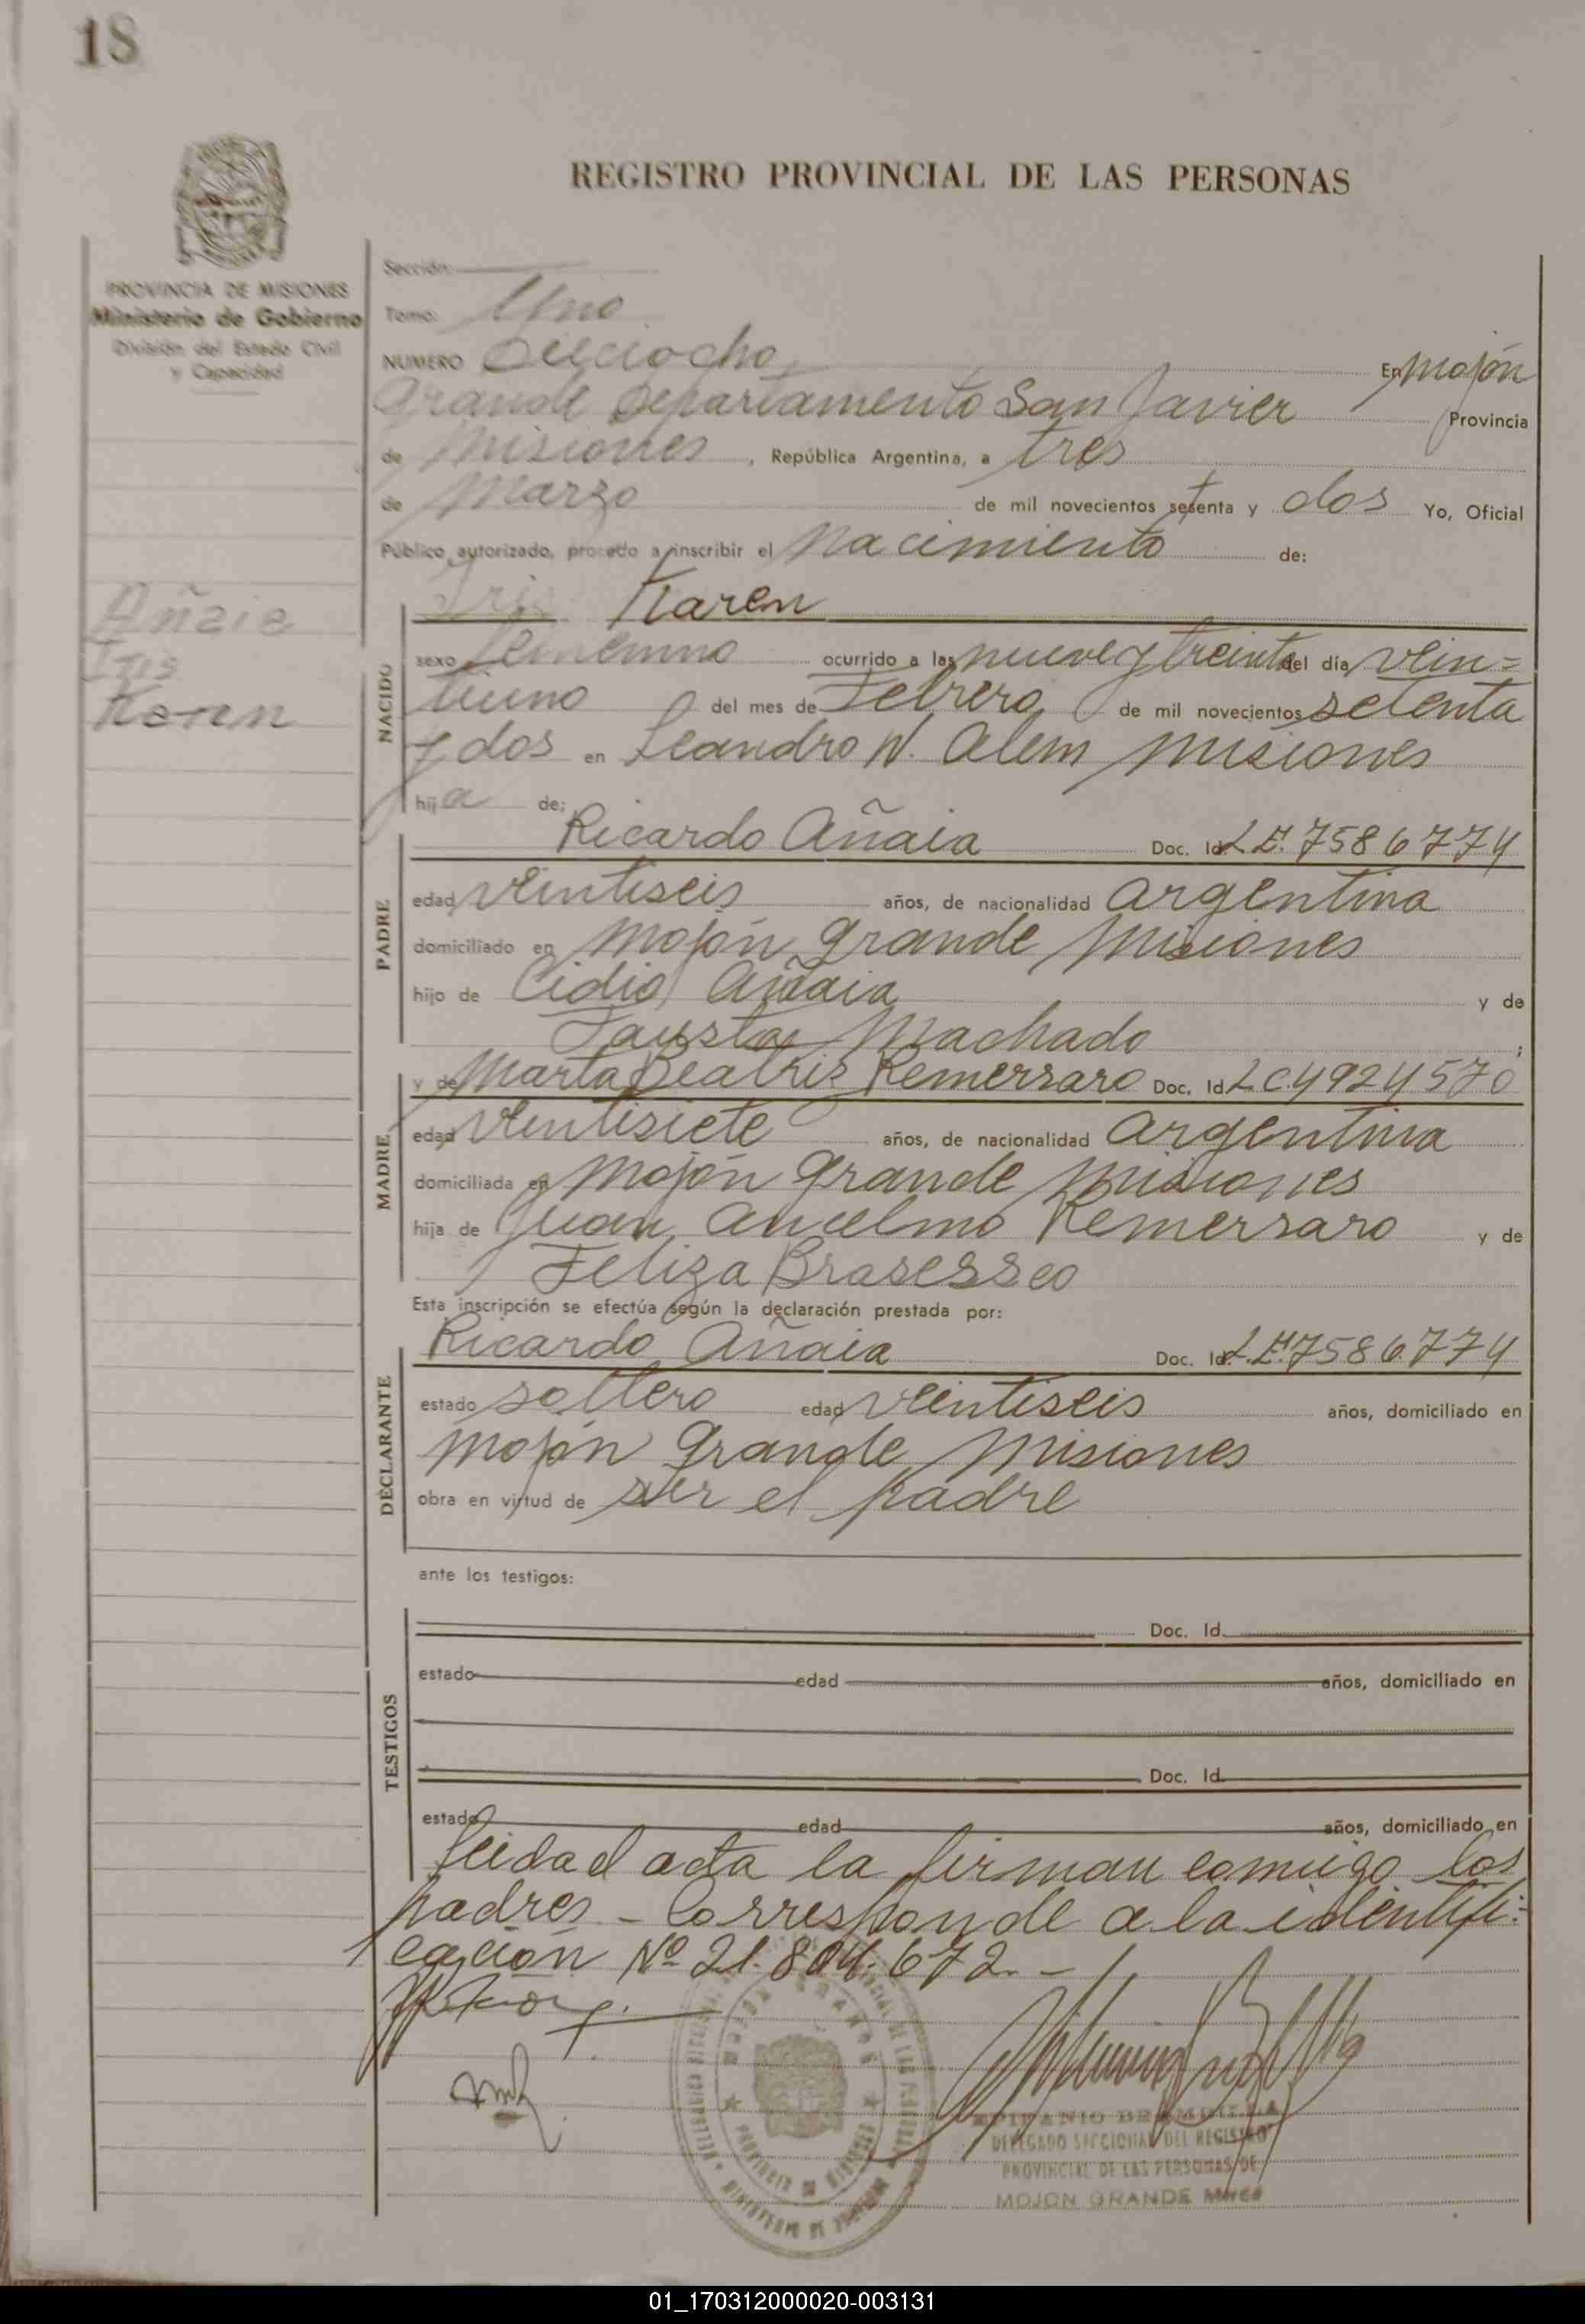 18
REGISTRO PROVINCIAL DE LAS PERSONAS
PROVINCIA DE MISIONES
Ministerio de Gobierno
División del Estado Civil
y Capacidad
Añaia
Iris
Karen
Sección:
Tomo: Uno
NUMERO Dieciocho En Mojón
Grande Departamento San Javier Provincia
de Misiones, República Argentina, a tres
de Marzo de mil novecientos setenta y dos Yo, Oficial
Público autorizado, procedo a inscribir el Nacimiento de:
Iris Karen
NACIDO
sexo femenino ocurrido a las nueve y treinta del día vein=
tiuno del mes de Febrero de mil novecientos setenta
y dos en Leandro N. Alem Misiones
hija de:
PADRE
Ricardo Añaia Doc. Id. L.E. 7586774
edad veintiseis años, de nacionalidad argentina
domiciliado en Mojón Grande Misiones
hijo de Cidio Añaia y de
Fausta Machado ;
MADRE
y de Marta Beatris Remersaro Doc. Id. LC4924570
edad veintisiete años, de nacionalidad argentina
domiciliada en Mojón Grande Misiones
hija de Juan Ancelmo Remersaro y de
Feliza
Esta inscripción se efectúa según la declaración prestada por:
DECLARANTE
Ricardo Añaia Doc. Id. L.E. 7586774
estado soltero edad veintiseis años, domiciliado en
Mojón Grande Misiones
obra en virtud de ser el padre
ante los testigos:
TESTIGOS
Doc. Id.
estado edad años, domiciliado en
Doc. Id.
estado edad años, domiciliado en
leida el acta la firman comigo los
padres - Corresponde a la identifi=
cación Nº 21.804.672.-
DELEGADO SECCIONAL DEL REGISTRO
PROVINCIAL DE LAS PERSONAS DE
MOJON GRANDE Mnes
01_170312000020-003131